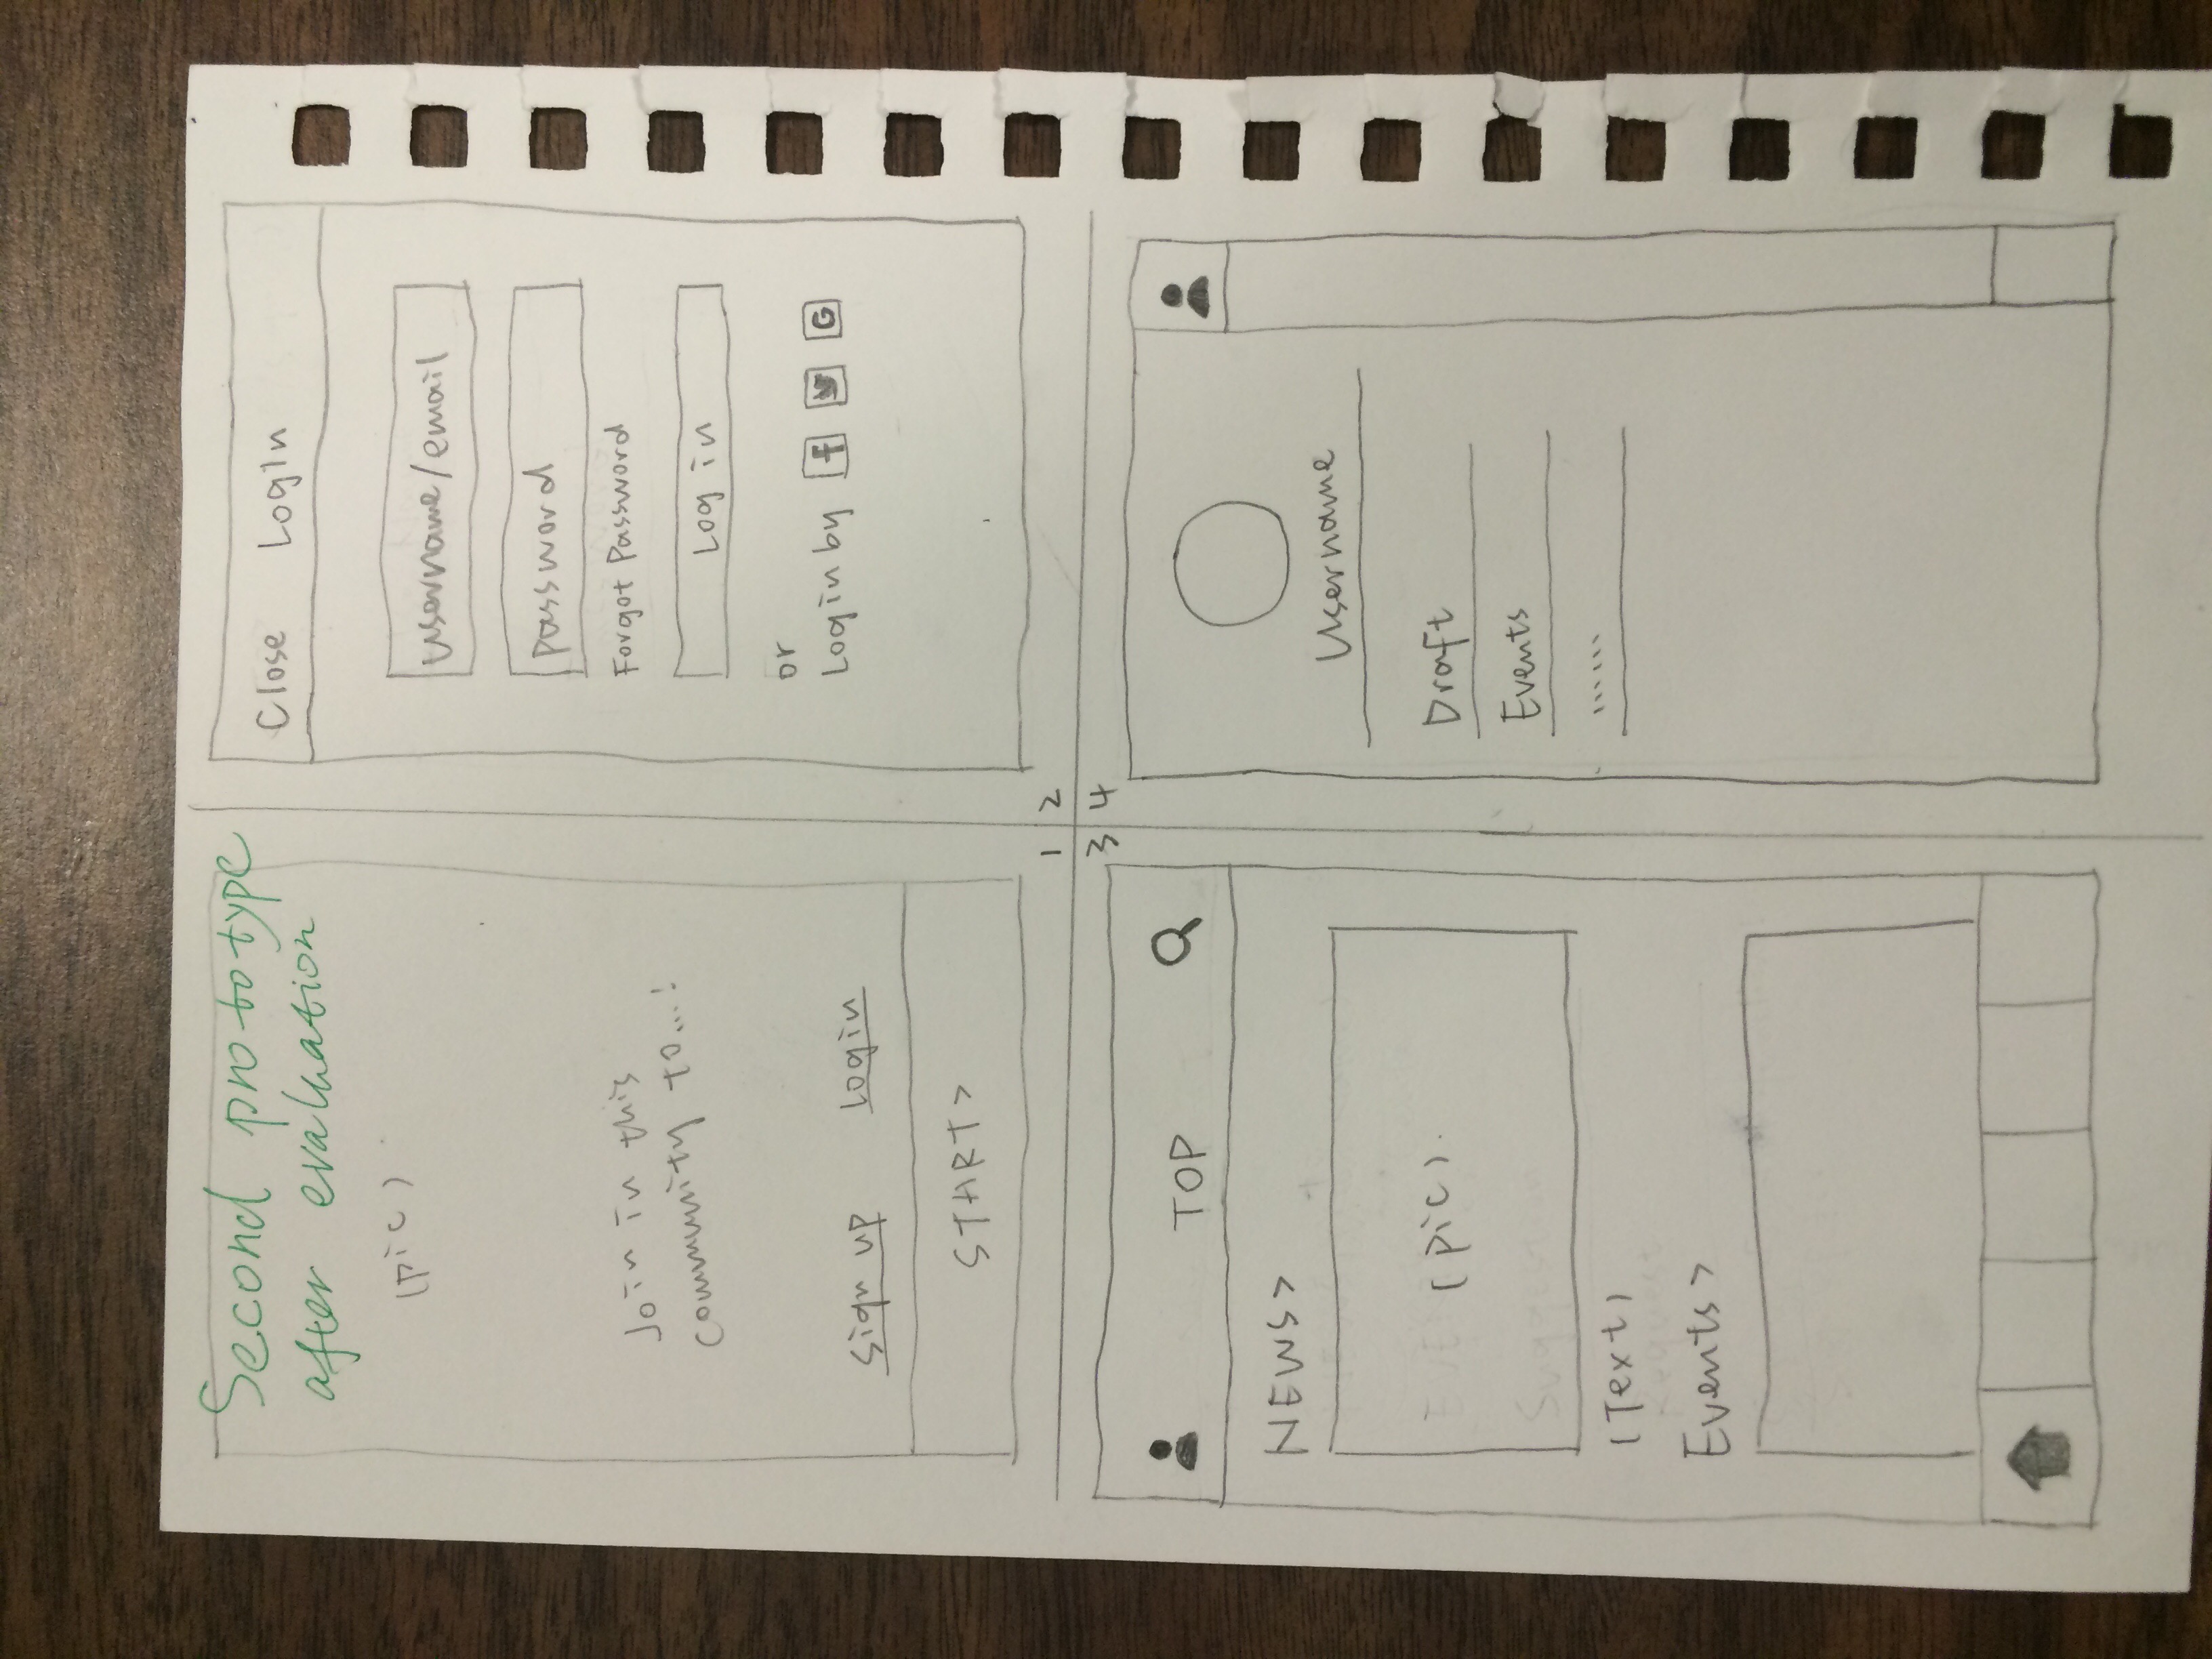 Second prototype
after evaluation
(pic)
Join in this
community to...!
sign up Login
START>
1
Close Login
username/email
password
Forgot Password
Log in
or
Login by f G
2
3
TOP
NEWS>
(pic).
(Text)
Events>
4
Username
Draft
Events
......